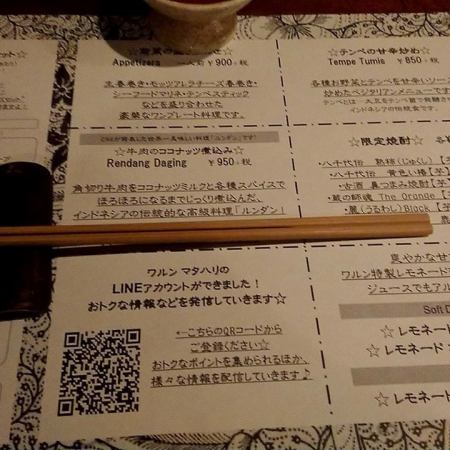 Appetizers ¥900+税
生春巻き・モッツァレラチーズ春巻き・
シーフードマリネ・テンペスティック
などを盛り合わせた
豪華なワンプレート料理です。
☆牛肉のココナッツ煮込み☆
Rendang Daging ¥950+税
角切り牛肉をココナッツミルクと各種スパイスで
ほろほろになるまでじっくり煮込んだ、
インドネシアの伝統的な高級料理「ルンダン」☆
ワルン マタハリの
LINEアカウントができました！
おトクな情報などを発信していきます☆
←こちらのQRコードから
ご登録ください☆
おトクなポイントを集められるほか、
様々な情報を配信していきます♪
☆テンペの甘辛炒め☆
Tempe Tumis ¥850+税
各種お野菜とテンペを甘辛いソー
炒めたベジタリアンメニューです
テンペとは…大豆をテンペ菌で発酵さ
インドネシアの伝統食です。
☆限定焼酎☆
・八千代伝 熟柿(じゅくし)【芋
・八千代伝 黄色い椿【芋】
・古酒 鼻つまみ焼酎【芋
・蔵の師魂 The Orange【芋
・麗(うるわし)Black【芋
爽やかな甘
ワルン特製レモネード
ジュースでもアル
Soft D
☆レモネード
☆レモネード
☆レモネー